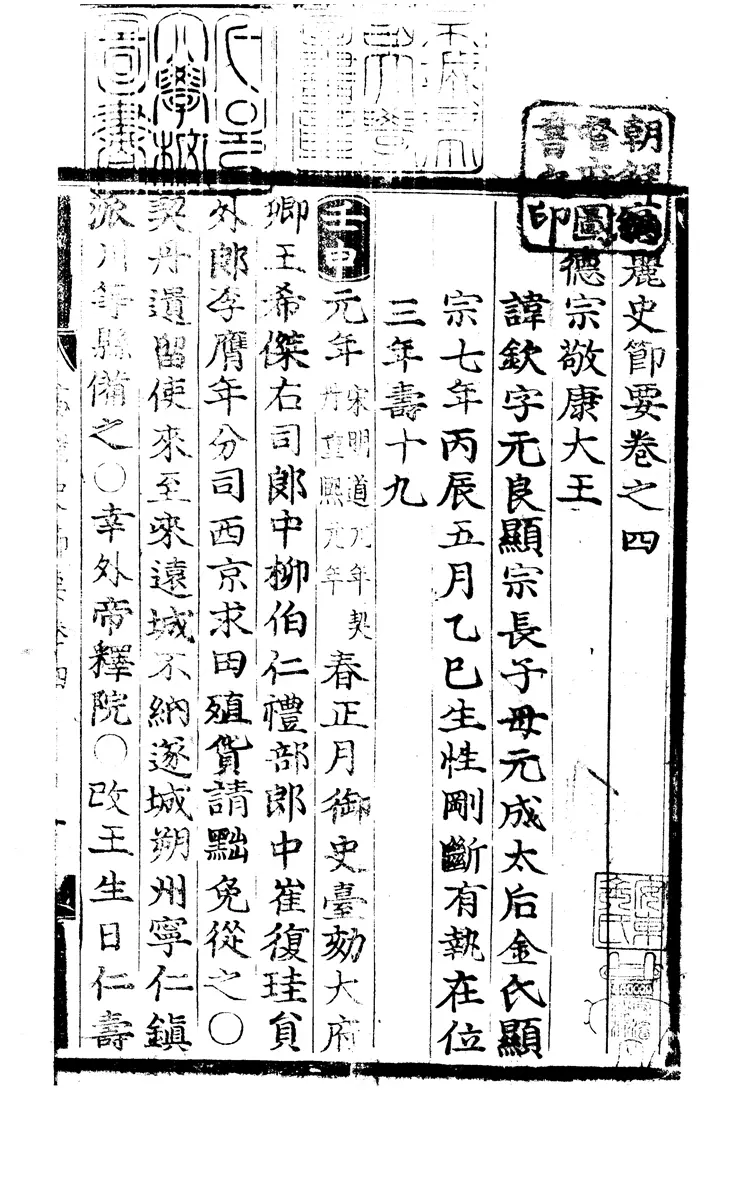 麗史節要卷之四
德宗敬康大王
諱欽字元良顯宗長子母元成太后金氏顯
宗七年丙辰五月乙巳生性剛斷有執在位
三年壽十九
壬申元年宋明道元年契丹重熙元年春正月御史臺劾大府
卿王希傑右司郎中柳伯仁禮部郎中崔復珪員
外郎李膺年分司西京求田殖貨請黜免從之○
契丹遺留使來至來遠城不納遂城朔州寧仁鎭
派川等縣備之○幸外帝釋院○改王生日仁壽
朝鮮總
督府圖
書之印